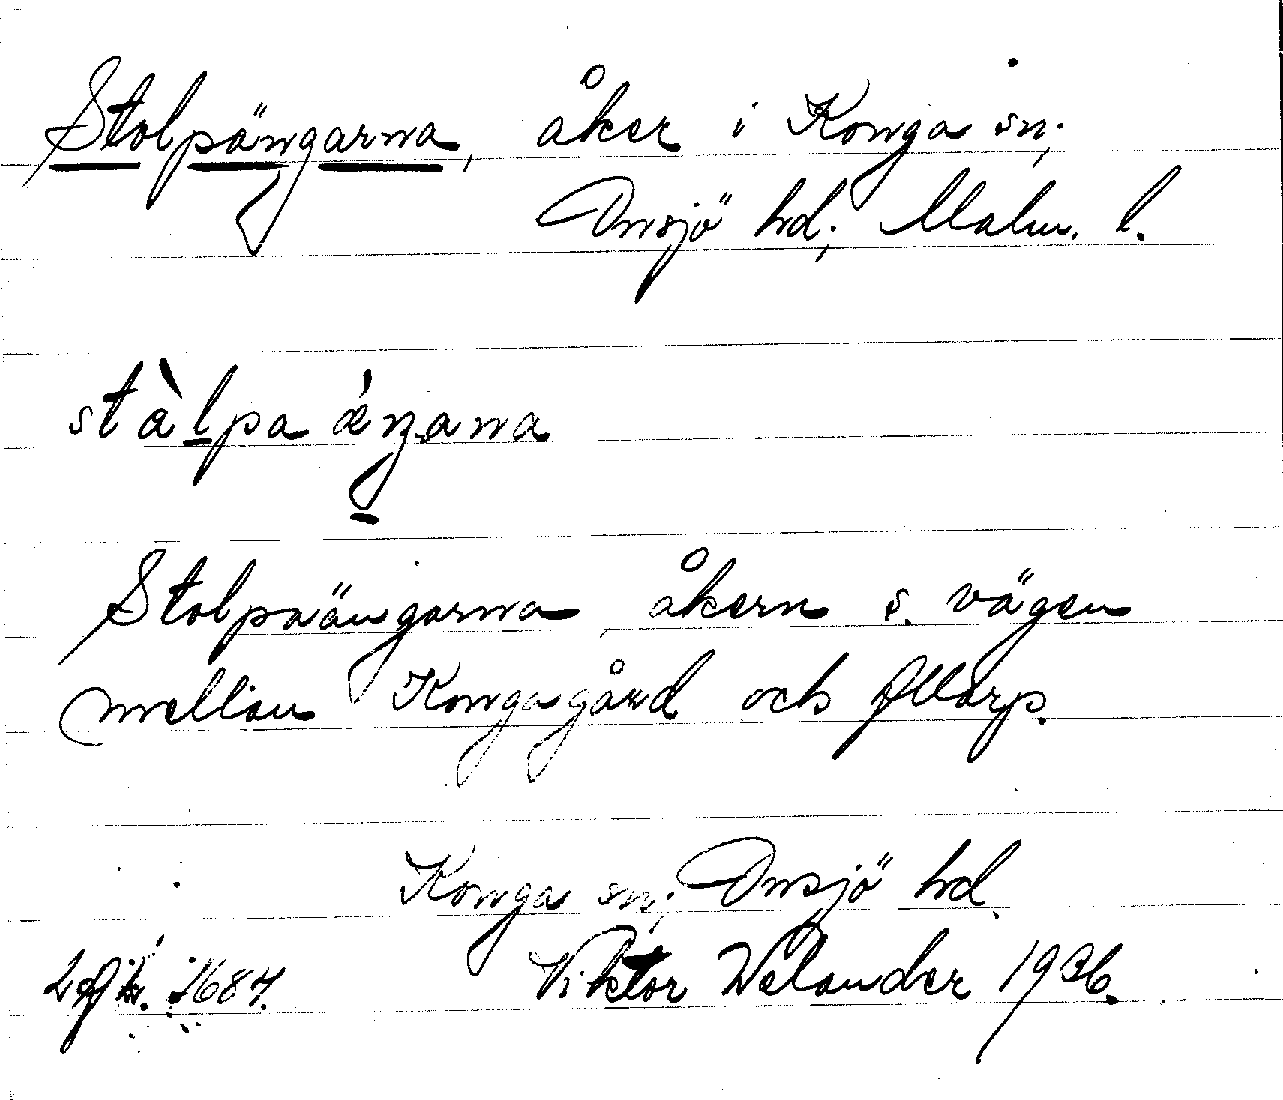 Stolpängarna, åker i Konga sn,
Onsjö hd, Malm. l.
stàlpa ángana
Stolpaängarna åkern s. vägen
mellan Kongagård och Allarp.
Konga sn, Onsjö hd.
1687. Viktor Welander 1936.